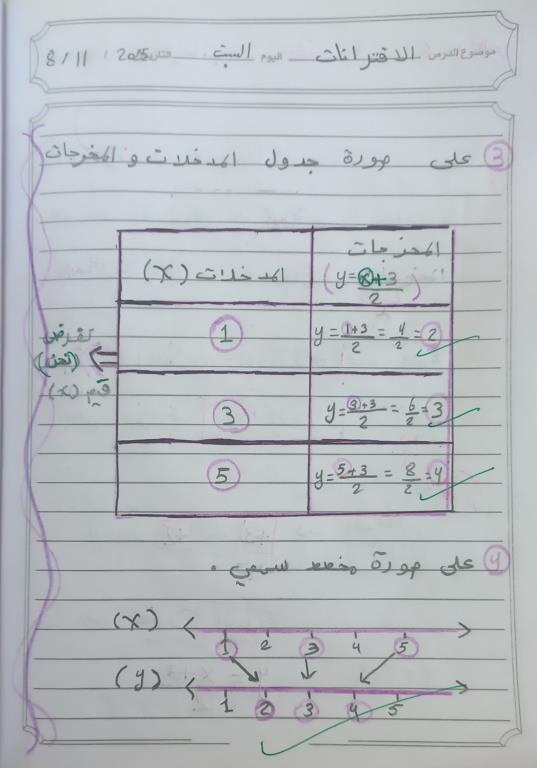 موضوع الدرس الاقترانات اليوم السبت التاريخ 8 / 11 / 2025
③ على صورة جدول المدخلات و المخرجات
المخرجات المدخلات (x)
(y = x+3/2)
1 y = 1+3/2 = 4/2 = 2
نفرض (نحن) قيم (x)
3 y = 3+3/2 = 6/2 = 3
5 y = 5+3/2 = 8/2 = 4
④ على صورة مخطط سهمي .
(x) 1 2 3 4 5
(y) 1 2 3 4 5